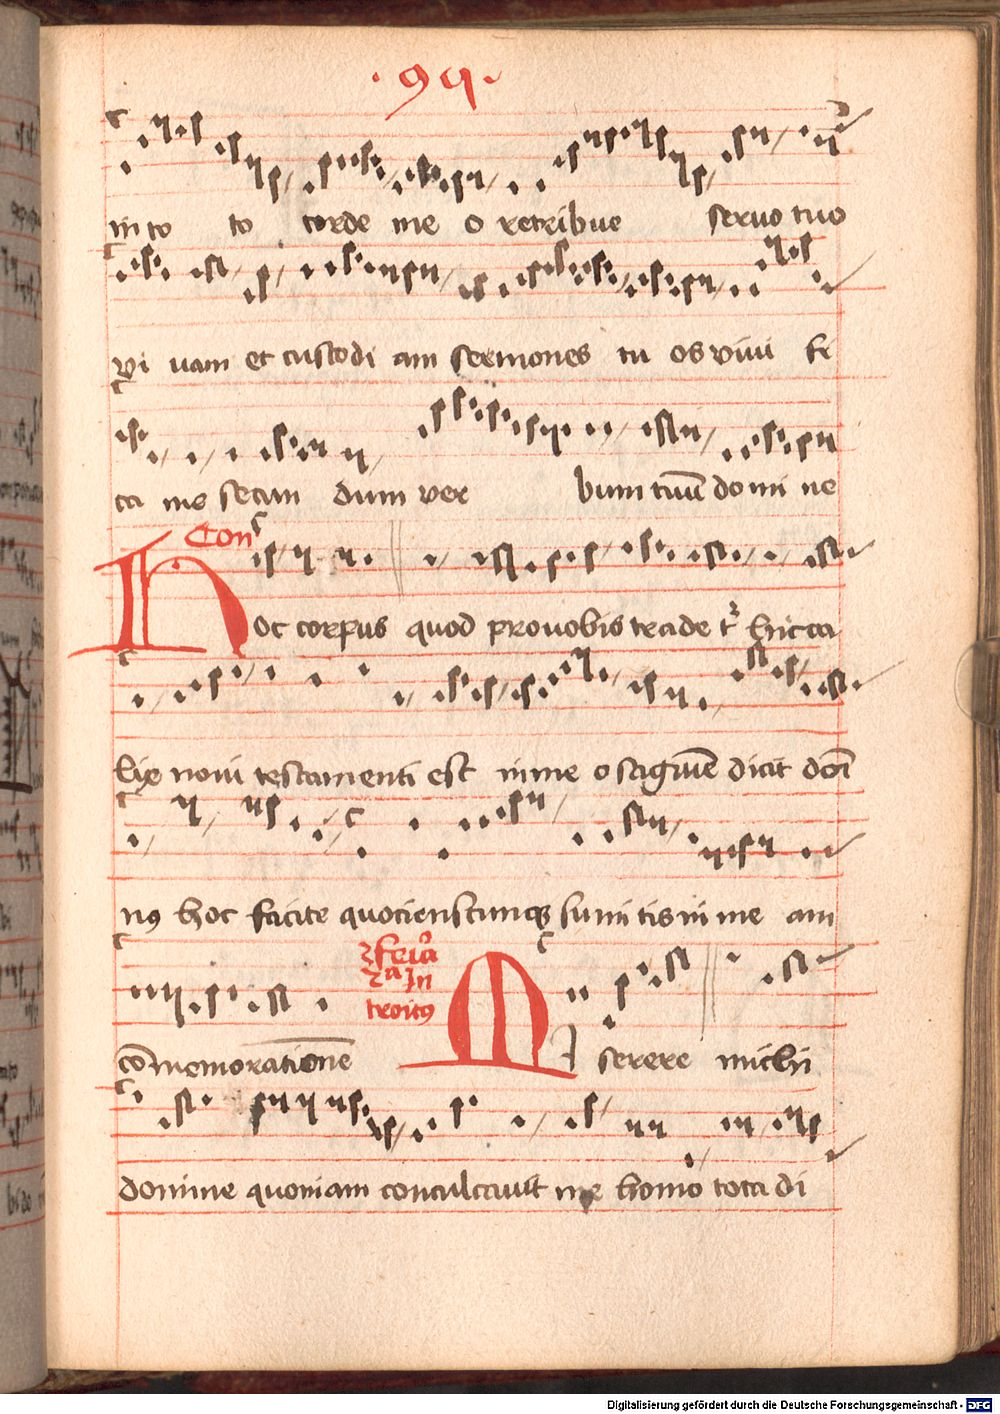 · 99 ·
in to to corde me o retribue seruo tuo
vi uam et custodi am sermones tu os viui fi
ca me secun dum ver bum tuū do mi ne
Con
Hoc corpus quod pro uobis trade tr̄ hic ca
lix noui testamenti est in me o sāgui͞e dicit dōi
nꝯ hoc facite quotienscunqꝫ sumi tis in me am
feria
In
troitꝯ
cōmemorationē Mi serere michi
domine quoniam conculcauit me homo tota di
Digitalisierung gefördert durch die Deutsche Forschungsgemeinschaft - DFG